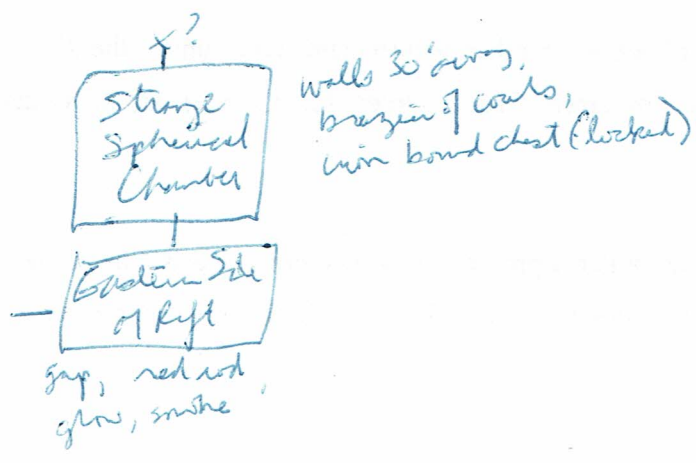 x?
Strange
Spherical
Chamber
walls 30' away,
brazier of coals,
iron bound chest (locked)
Eastern Side
of Rift
gap, red rod
glow, smoke,